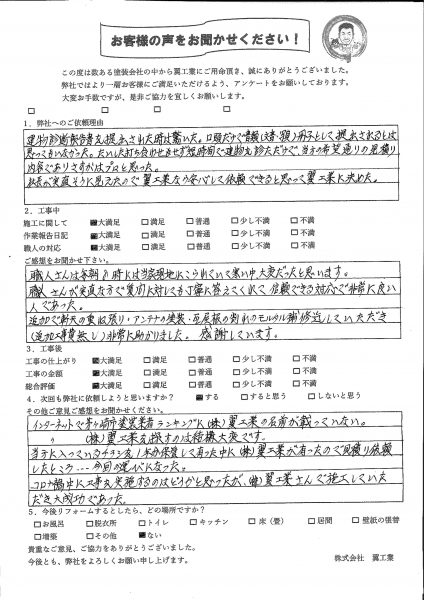 お客様の声をお聞かせください！
この度は数ある塗装会社の中から翼工業にご用命頂き、誠にありがとうございました。
弊社ではより一層お客様にご満足いただけるよう、アンケートをお願いしております。
大変お手数ですが、是非ご協力を宜しくお願いします。
1．弊社へのご依頼理由
建物診断報告書を提出された時は驚いた。口頭だけで冊子として提出されるとは
思ってもいなかった。たいした打ち合わせもせず短時間で建物を診ただけで、当方の希望通りの見積り
内容でありさすがはプロと思った。
社長が実直そうに見えたので翼工業なら安心して依頼できると思って翼工業に決めた。
2．工事中
施工に関して ■大満足 □満足 □普通 □少し不満 □不満
作業報告日記 ■大満足 □満足 □普通 □少し不満 □不満
職人の対応 ■大満足 □満足 □普通 □少し不満 □不満
ご感想をお聞かせ下さい。
職人さんは毎朝8時には当家現地にこられていて寒い中大変だったと思います。
職人さんが実直な方で質問に対しても丁寧に答えてくれて信頼できる対応で非常に良い
人であった。
追加で軒天の重ね張り・アンテナの塗装・瓦屋根の割れのモルタル補修迄していただき
（追加工事費無し）非常に助かりました。感謝しています。
3．工事後
工事の仕上がり ■大満足 □満足 □普通 □少し不満 □不満
工事の金額 ■大満足 □満足 □普通 □少し不満 □不満
総合評価 ■大満足 □満足 □普通 □少し不満 □不満
4．次回も弊社に依頼しようと思いますか？ ■する □すると思う □しないと思う
その他ご意見ご感想をお聞かせください。
インターネットで茅ヶ崎市塗装業者ランキングに（株）翼工業の名前が載っていない。
〃 （株）翼工業を探すのは結構大変です。
当方に入っているチラシを1年分保管して有った中に（株）翼工業が有ったので見積り依頼
したところ…今回の運びになった。
コロナ禍中に工事を実施するのはどうかと思ったが、（株）翼工業さんで施工していた
だき大成功であった。
5．今後リフォームするとしたら、どの場所ですか？
□お風呂 □脱衣所 □トイレ □キッチン □床（畳） □居間 □壁紙の張替
□増築 □その他 ■ない
貴重なご意見、ご協力をありがとうございました。
今後とも、弊社をよろしくお願い申し上げます。
株式会社 翼工業